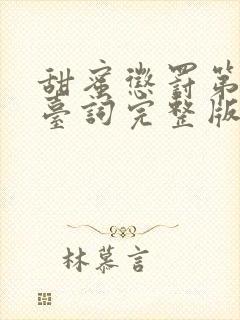 甜蜜懲罰第
臺詞完整版
林慕言